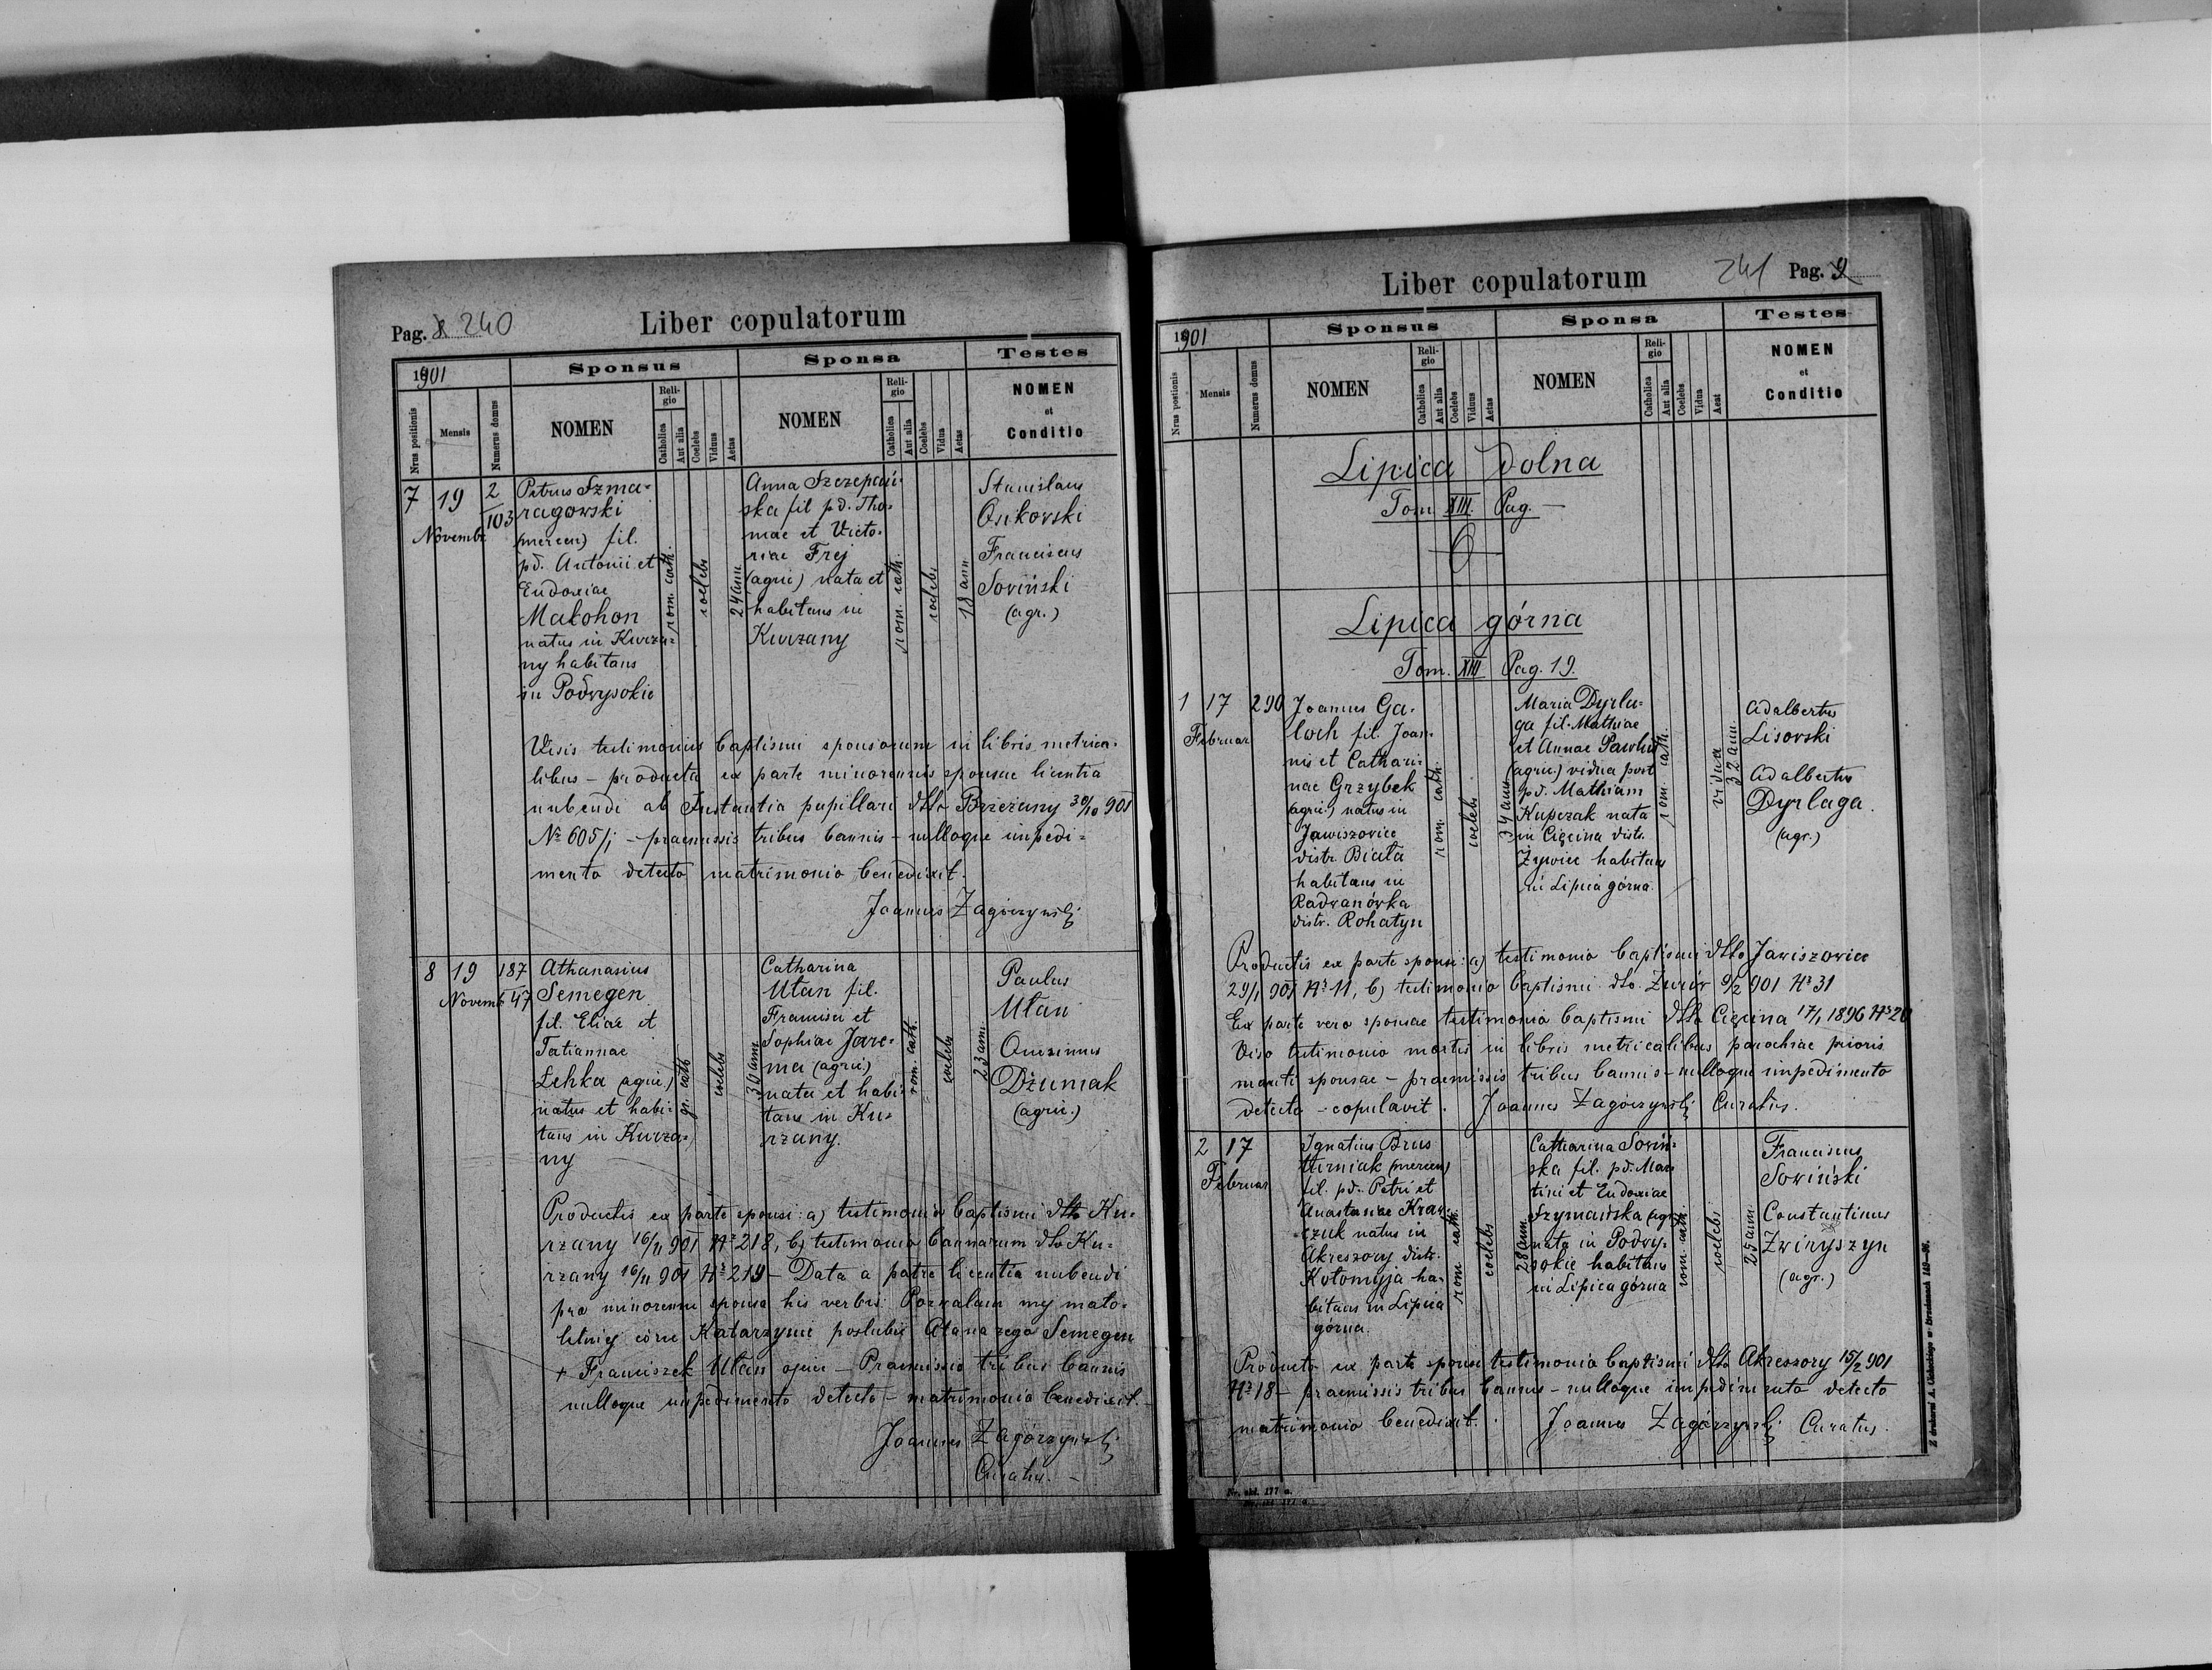 Pag. 8 240
Liber copulatorum
1901
Sponsus
Sponsa
Testes
Nrus positionis
Mensis
Numerus domus
NOMEN
Religio
Catholica
Aut alia
Coelebs
Viduus
Aetas
NOMEN
Religio
Catholica
Aut alia
Coelebs
Vidua
Aetas
NOMEN
et
Conditio
7 19 2/103
Novembr
Petrus Szma-
ragowski
(mercen) fil.
pd. Antonii et
Eudoxiae
Makohon
natus in Kurza-
ny habitans
in Podwysokie
rom. cath.
coelebs
24 ann
Anna Szczepań-
ska fil pd. Tho-
mae et Victo-
riae Frej
(agric) nata et
habitans in
Kurzany
rom. cath.
coelebs
18 ann
Stanislaus
Osikovski
Franciscus
Soviński
(agr.)
Visis testimoniis baptismi sponsorum in libris metrica-
libus – producta ex parte minorennis sponsae licentia
nubendi ab Instantia pupillari ddto Brzeżany 30/10 901
№ 605/1 – praemissis tribus bannis – nulloque impedi-
mento detecto matrimonio benedixit.
Joannes Zagórzyński
8 19 187/47
Novemb
Athanasius
Semegen
fil. Eliae et
Tatiannae
Lehka (agric.)
natus et habi-
tans in Kurza-
ny
gr. cath
coelebs
30 ann
Catharina
Ułan fil.
Francisci et
Sophiae Jare-
ma (agric)
nata et habi-
tans in Ku-
rzany.
rom. cath.
coelebs
23 ann.
Paulus
Ułan
Onezimus
Dżumak
(agric.)
Productis ex parte sponsi: a) testimonio baptismi ddto Ku-
rzany 16/11 901 № 218, b) testimonio bannorum ddo Ku-
rzany 16/11 901 № 219 – Data a patre licentia nubendi
pro minorenni sponsa his verbis: Pozwalam mej mało-
letniej córce Katarzynie poślubić Atanazego Semegen
+ Franciszek Ułan ojciec – Praemissis tribus bannis
nulloque impedimento detecto – matrimonio benedixit. –
Joannes Zagórzyński
Curatus. –
Liber copulatorum
241 Pag. 9
1901
Sponsus
Sponsa
Testes
Nrus positionis
Mensis
Numerus domus
NOMEN
Religio
Catholica
Aut alia
Coelebs
Viduus
Aetas
NOMEN
Religio
Catholica
Aut alia
Coelebs
Vidua
Aeat
NOMEN
et
Conditio
Lipica dolna
Tom XIII. Pag. –
Lipica górna
Tom. XIII Pag. 19.
1 17 290
Februar
Joannes Ga-
loch fil. Joan-
nis et Cathari-
nae Grzybek
(agric.) natus in
Jawiszovice
distr. Biała
habitans in
Radvanówka
distr. Rohatyn
rom. cath.
coelebs
34 ann
Maria Dyrla-
ga fil. Mathiae
et Annae Pawlus
(agric.) vidua post
pd. Mathiam
Kupczak nata
in Cięcina distr.
Żywiec habitans
in Lipica górna.
rom. cath.
vidua
32 ann.
Adalbertus
Lisovski
Adalbertus
Dyrlaga.
(agr.)
Productis ex parte sponsi: a) testimonio baptismi ddto Jawiszovice
29/1 901 № 11, b) testimonio baptismi ddo. Żurów 9/2 901 № 31
Ex parte vero sponsae testimonio baptismi ddto Cięcina 17/1 1896 № 20
Viso testimonio mortis in libris metricalibus parochiae prioris
mariti sponsae – praemissis tribus bannis – nulloque impedimento
detecto – copulavit. Joannes Zagórzyński Curatus.
2 17
Februar
Ignatius Brus
turniak (mercen)
fil. pd. Petri et
Anastasiae Kraw-
czuk natus in
Akreszory distr.
Kołomyja ha-
bitans in Lipica
górna.
rom cath.
coelebs
28 ann.
Catharina Soviń-
ska fil. pd. Mar-
tini et Eudoxiae
Szymańska (agr.)
nata in Podwy-
sokie habitans
in Lipica górna
rom. cath.
coelebs
25 ann.
Franciscus
Sowiński
Constantinus
Zwinyszyn
(agr.)
Producto ex parte sponsi testimonio baptismi ddto Akressory 15/2 901
№ 18 – praemissis tribus bannis – nulloque impedimento detecto
matrimonio benedixit. Joannes Zagórzyński Curatus.
Nr. skł. 177 a.